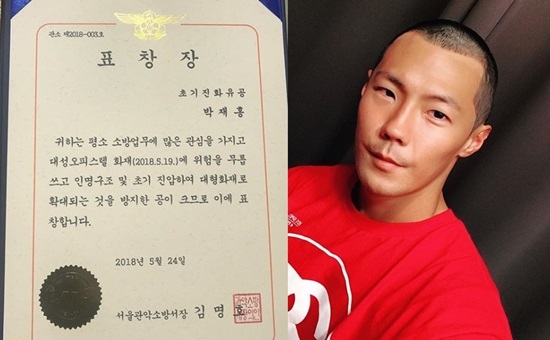 관소 제2018-003호
표 창 장
초기진화유공
박재홍
귀하는 평소 소방업무에 많은 관심을 가지고
대성오피스텔 화재(2018.5.19.)에 위험을 무릅
쓰고 인명구조 및 초기 진압하여 대형화재로
확대되는 것을 방지한 공이 크므로 이에 표
창합니다.
2018년 5월 24일
서울관악소방서장 김명호